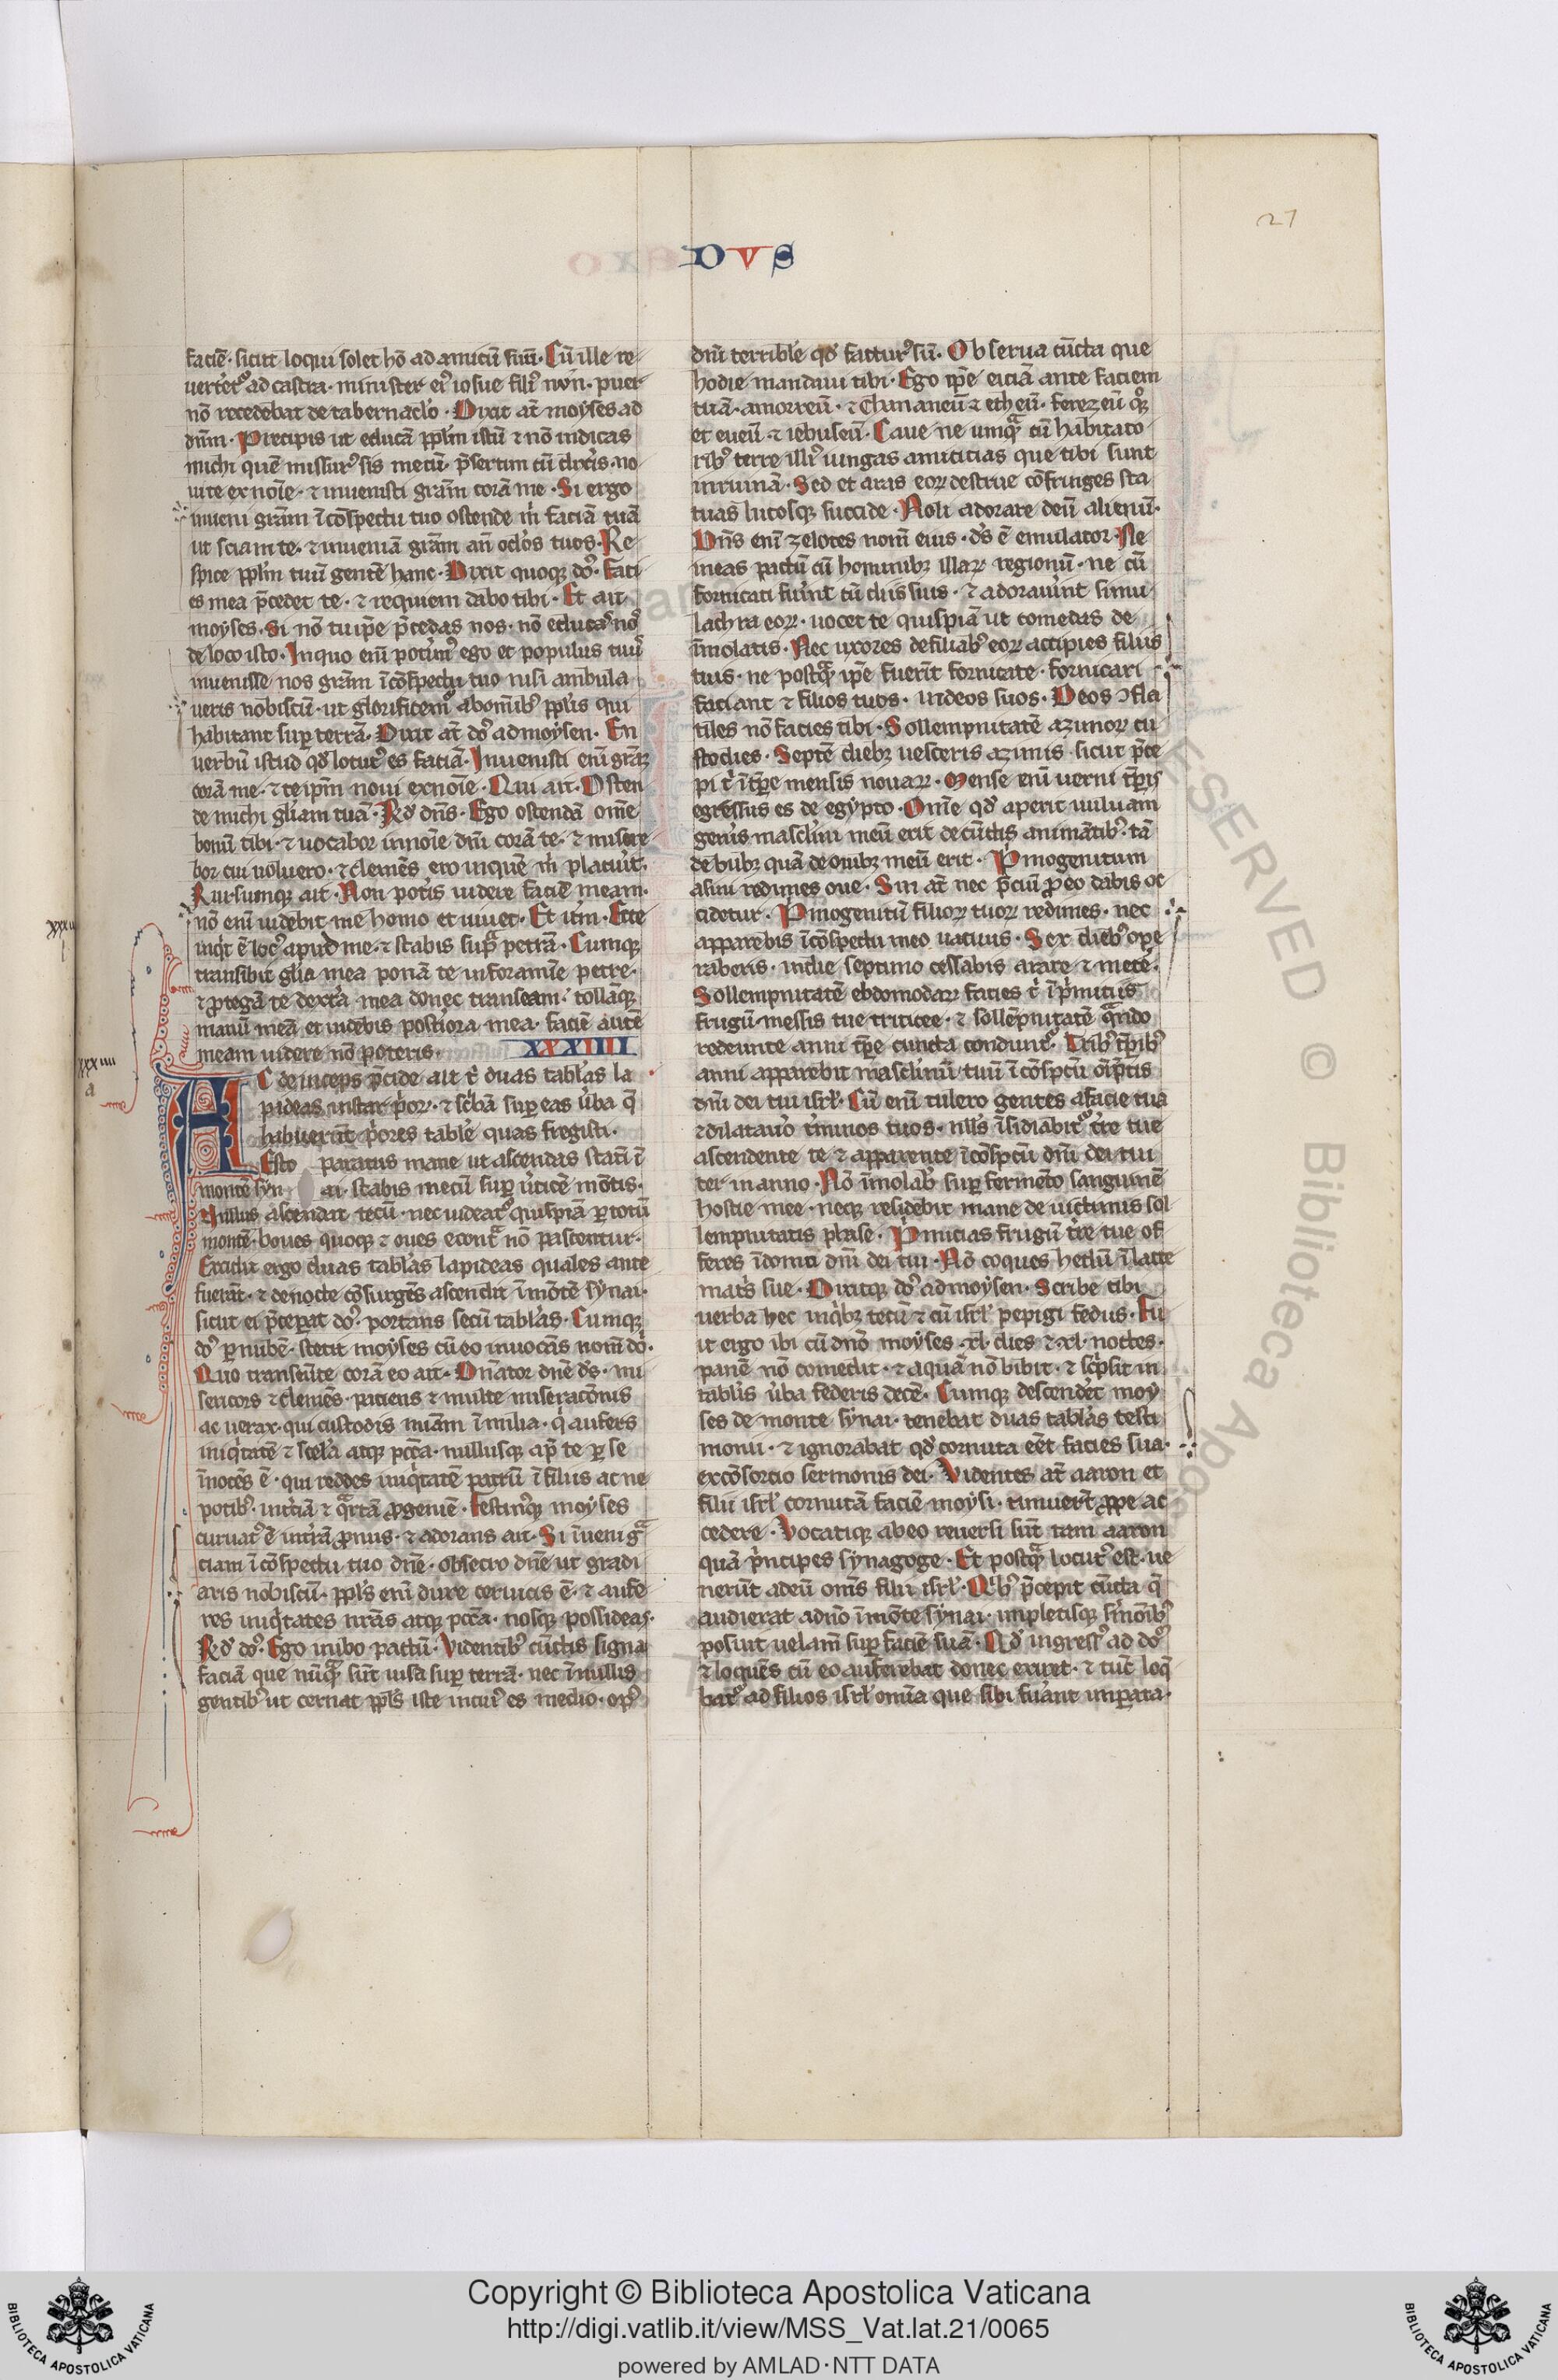 27
DVS
faciē· sicut loqui solet hō ad amicū suū· Cū ille re
uert̄et᷑ ad castra· minister ei᷒ iosue fili᷒ nvn· puer
nō recedebat de tabernac̄lo· Dixit at̄ moyses ad
dn̄m· Precipis ut educā ppl̄m istū ⁊ nō indicas
michi quē missur᷒ sis mecū· p̄sertim cū dix̄is· no
ui te ex noīe· ⁊ inuenisti gr̄am corā me· Si ergo
inueni gr̄am ī cōspectu tuo ostende m̄ faciā tuā
ut sciam te· ⁊ inueniā gr̄am an̄ ocl̄os tuos· Re
spice ppl̄m tuū gentē hanc· Dixit quoqꝫ do᷒· faci
es mea p̄cedet te· ⁊ requiem dabo tibi· Et ait
moyses· Si nō tu ip̄e p̄cedas nos· nō educas no᷒
de loco isto· In quo eni᷒ potim᷒ ego et populus tuu᷒
inuenisse nos gr̄am ī cōspectu tuo nisi ambula
ueris nobiscū· ut glorificem᷒ ab omib᷒ ppl̄is qui
habitant suꝑ terrā· Dixit at̄ do᷒ ad moysen· En
uerbū istud qd̄ locut᷒ es faciā· Inuenisti eni᷒ gr̄am
corā me· ⁊ te ip̄m noui ex noīe· Qui ait· Osten
de michi gl̄iam tuā· Rd̄ dn̄s· Ego ostendā om̄e
bonū tibi· ⁊ uocabor in noīe dn̄i corā te· ⁊ misere
bor cui uoluero· ⁊ clemēs ero in quē m̄ placuit·
Rursumqꝫ ait· Non pot̄is uidere faciē meam·
nō eni᷒ uidebit me homo et uiuet· Et itm̄· Ecce
inqt̄ ē loc᷒ apud me· ⁊ stabis supᷓ petrā· Cumqꝫ
transibit gl̄ia mea ponā te in foramīe petre·
⁊ ꝓtegā te dext̄a mea donec transeam· tollāqꝫ
manū meā et uidebis post̄iora mea· faciē autē
meam uidere nō poteris· XXXIIII
AC deinceps p̄cide ait t̄ duas tabl̄as la
pideas instar p̄or̄· ⁊ sc̄bā suꝑ eas ūba q̄
habuerūt p̄ores table quas fregisti·
Esto paratus mane ut ascendas statī ī
montē syn ai· stabis mecū suꝑ ūticē mōtis·
Nullus ascendat tecū· nec uideat᷑ quispiā ꝑ totū
montē· boues quoqꝫ ⁊ oues econtᷓ nō pascentur·
Excidit ergo duas tabl̄as lapideas quales ante
fuerāt· ⁊ de nocte cōsurgēs ascendit ī mōtē synai·
sicut ei p̄ceꝑat do᷒· portans secū tabl̄as· Cumqꝫ
do᷒ ꝑ nubē· stetit moyses cū eo inuocās nom̄ do᷒·
Quo transeūte corā eo ait· Dn̄ator dn̄e ds̄· mi
sericors ⁊ clemēs· paciens ⁊ multe miseracōnis
ac uerax· qui custodis mīam ī milia· q aufers
iniqtatē ⁊ scel̄a atqꝫ pcc̄a· nullusqꝫ ap̄ te ꝑ se
īnocēs ē· qui reddes iniqtatē patrū ī filiis ac ne
potib᷒· in t̄ciā ⁊ qᷓrtā ꝓgeniē· Festinqꝫ moyses
curuat᷒ ē in t̄rā ꝓnus· ⁊ adorans ait· Si īueni gᷓ
ciam ī cōspectu tuo dn̄e· obsecro dn̄e ut gradi
aris nobiscū· ppl̄s eni᷒ dure ceruicis ē· ⁊ aufe
res iniqtates nr̄as atqꝫ pcc̄a· nosqꝫ possideas·
Rd̄ do᷒· Ego inibo pactū· Videntib᷒ cūctis signa
faciā que nūqᷓ sūt uisa suꝑ terrā· nec ī nullis
gentib᷒ ut cernat ppl̄s iste in cui᷒ es medio· op᷒
dn̄i terrible qd̄ factur᷒ sū· Observa cūcta que
hodie mandaui tibi· Ego ip̄e eiciā ante faciem
tuā· amorreū· ⁊ Chananeū ⁊ etheū· ferezeū qꝫ
et eueū ⁊ iebuseū· Caue ne umqᷓ cū habitato
rib᷒ terre illi᷒ iungas amicicias que tibi sunt
in ruinā· Sed et aras eoꝝ destrue cōfringes sta
tuas lucosqꝫ succide· Noli adorare deū alienū·
Dn̄s eni᷒ zelotes nom̄ eius· ds̄ ē emulator· Ne
ineas pactū cū hominibꝫ illaꝝ regionū· ne cū
fornicati fuīnt cū diis suis· ⁊ adorauīnt simu
lachra eoꝝ· uocet te quispiā ut comedas de
īmolatis· Nec uxores de filiab᷒ eoꝝ accipies filiis
tuis· ne postqᷓ ip̄e fuerīt fornicate· fornicari
faciant ⁊ filios tuos· in deos suos· Deos ꝯfla
tiles nō facies tibi· Sollempnitatē azimoꝝ cu
stodies· Septē diebꝫ uesceris azimis· sicut p̄ce
pi t̄ ī tp̄e mensis nouaꝝ· Mense eni᷒ uerni tp̄is
egressus es de egypto· Om̄e qd̄ aperit uuluam
genis masclini meū erit de cūctis animātib᷒· tā
de bubꝫ quā de ouibꝫ meū erit· P̄mogenitum
asini redimes oue· Sin at̄ nec p̄ciū ꝓ eo dabis oc
cidetur· P̄mogenitū filioꝝ tuoꝝ redimes· nec
apparebis ī cōspectu meo uacuus· Sex dieb᷒ oꝑe
raberis· in die septimo cessabis arare ⁊ mete·
Sollempnitatē ebdomodaꝝ facies t̄ ī p̄miciis
frugū messis tue triticee· ⁊ sollēpnitatē qᷓndo
redeunte anni tp̄e cuncta condunt᷑· Trib᷒ tp̄ib᷒
anni apparebit masclinū tuū ī cōspcū oīp̄tis
dn̄i dei tui isrl̄· Cū eni᷒ tulero gentes a facie tua
⁊ dilatau̇o t̄minos tuos· nll̄s īsidiabit᷑ t̄re tue
ascendente te ⁊ apparente ī cōspcū dn̄i dei tui
ter in anno· Nō īmolab᷒ suꝑ fermēto sanguinē
hostie mee· neqꝫ residebit mane de uictimis sol
lempnitatis phase· P̄micias frugū t̄re tue of
feres ī domū dn̄i dei tui· Nō coques hedū ī lacte
mat̄s sue· Dixitqꝫ do᷒ ad moysen· Scribe tibi
uerba hec in qbꝫ tecū ⁊ cū isrl̄ pepigi fedus· Fu
it ergo ibi cū dn̄o moyses ·xl· dies ⁊ ·xl· noctes·
panē nō comedit· ⁊ aquā nō bibit· ⁊ sc̄psit in
tabl̄is ūba federis decē· Cumqꝫ descendēt moy
ses de monte synai· tenebat duas tabl̄as testi
monii· ⁊ ignorabat qd̄ cornuta eēt facies sua·
ex cōsorcio sermonis dei· Videntes at̄ aaron et
filii isrl̄ cornutā faciē moysi· timuer̄t ꝓpe ac
cedere· Vocatiqꝫ ab eo reuersi sūt tam aaron
quā p̄ncipes synagoge· Et postqᷓ locut᷒ est· ue
nerūt ad eū oms̄ filii isrl̄· Qib᷒ p̄cepit cūcta q̄
audierat a dn̄o ī mōte synai· impletisqꝫ s̄monib᷒
posuit uelam̄ suꝑ faciē suā· Qd̄ ingress᷒ ad do᷒
⁊ loquēs cū eo auferebat donec exiret· ⁊ tūc loq̄
bat᷑ ad filios isrl̄ omīa que sibi fuāt imꝑata·
xxxiiii
a
Copyright © Biblioteca Apostolica Vaticana
http://digi.vatlib.it/view/MSS_Vat.lat.21/0065
powered by AMLAD·NTT DATA
BIBLIOTECA APOSTOLICA VATICANA
BIBLIOTECA APOSTOLICA VATICANA